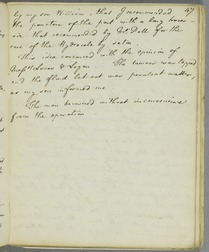 47
by my son William, that I recommended
the puncture of the part with a long
that recommended by Dr Dell for the
cure of the Hydrocele by
This idea concurred with the opinion of
& Logan. The tumour was tapped
and the fluid let out was purulent matter,
as my son informed me.
The man recovered without inconvenience
from the operation